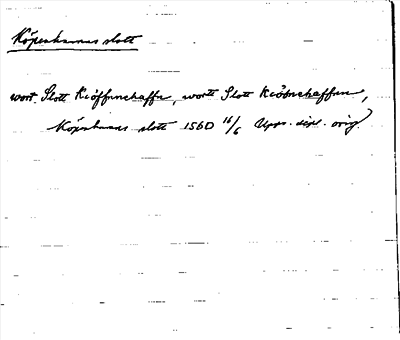 Köpenhamns slott
wort. Slott Kiöffunehaffn, wortt Slott Kiöbnehaffnn,
Köpnhams slott 1560 16/6 Upps. dipl. orig.